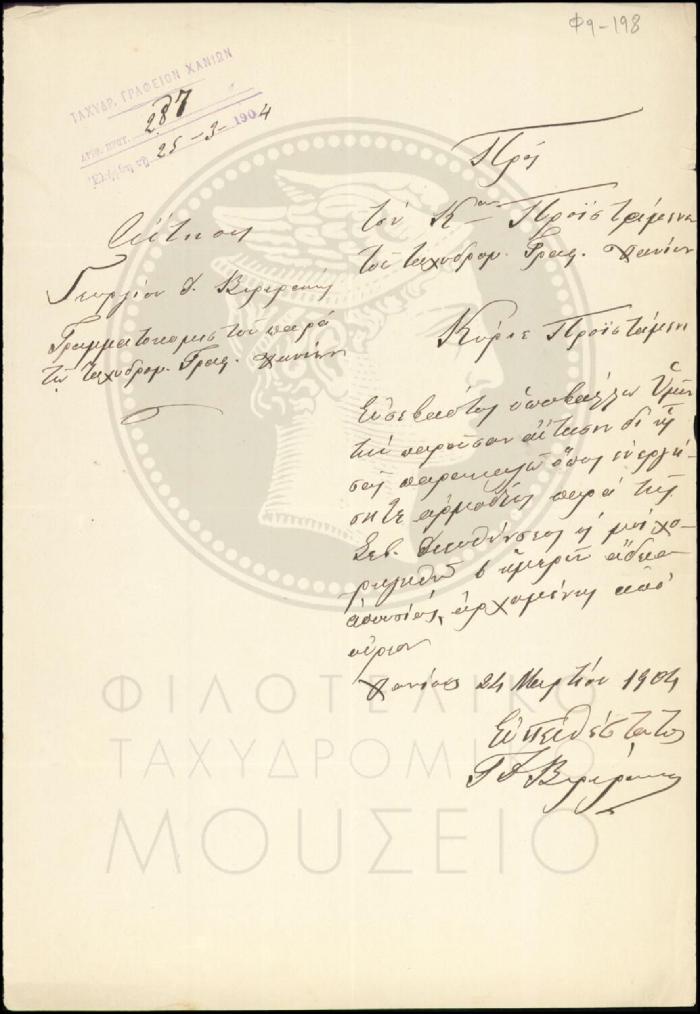 Φ9-198
ΤΑΧΥΔΡ. ΓΡΑΦΕΙΟΝ ΧΑΝΙΩΝ
ΑΡΙΘ. ΠΡΩΤ. 287
25-3-1904
Πρὸς
τὸν Κον Προϊστάμενον
τοῦ ταχυδρομ. Γραφ. Χανίων
Αἴτησις
Γεωργίου
Γραμματοκομιστοῦ παρὰ
τῷ ταχυδρομ. Γραφ. Χανίων
Κύριε Προϊστάμενε
Εὐσεβάστως ὑποβάλλω Ὑμῖν
τὴν παροῦσαν αἴτησιν δι' ἧς
σᾶς παρακαλῶ ὅπως ἐνεργή-
σητε ἁρμοδίως παρὰ τῆς
Σεβ. Διευθύνσεως μοὶ χο-
ρηγηθῇ ἡμερῶν ἄδεια
ἀπουσίας, ἀρχομένης ἀπὸ
αὔριον
Χανίοις 24 Μαρτίου 1904
Εὐπειθέστατος
ΦΙΛΟΤΕΛΙΚΟ
ΤΑΧΥΔΡΟΜΙΚΟ
ΜΟΥΣΕΙΟ